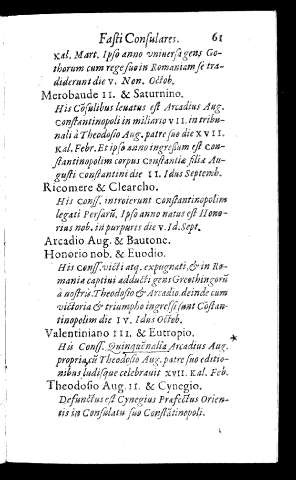 Fasti Consulares. 61
Kal. Mart. Ipso anno vniuersa gens Go-
thorum cum rege suo in Romaniam se tra-
diderunt die v. Non. Octob.
Merobaude II. & Saturnino.
His Cōsulibus leuatus est Arcadius Aug.
Constantinopoli in miliario VII. in tribu-
nali à Theodosio Aug. patre suo die XVII.
Kal. Febr. Et ipso anno ingressum est Con-
stantinopolim corpus Constantiæ filiæ Au-
gusti Constantini die II. Idus Septemb.
Ricomere & Clearcho.
His Conss. introierunt Constantinopolim
legati Persarū. Ipso anno natus est Hono-
rius nob. in purpuris die v. Id. Sept.
Arcadio Aug. & Bautone.
Honorio nob. & Euodio.
His Conss. victi atq. expugnati, & in Ro-
mania captiui adducti gens Greothingorū
à nostris. Theodosio & Arcadio. deinde cum
victoria & triumpho ingressi sunt Cōstan-
tinopolim die IV. Idus Octob.
Valentiniano III. & Eutropio.
His Conss. Quinquēnalia Arcadius Aug.
propria, cū Theodosio Aug. patre suo editio-
nibus ludisque celebrauit XVII. Kal. Feb.
Theodosio Aug. II. & Cynegio.
Defunctus est Cynegius Præfectus Orien-
tis in Consulatu suo Constātinopoli.